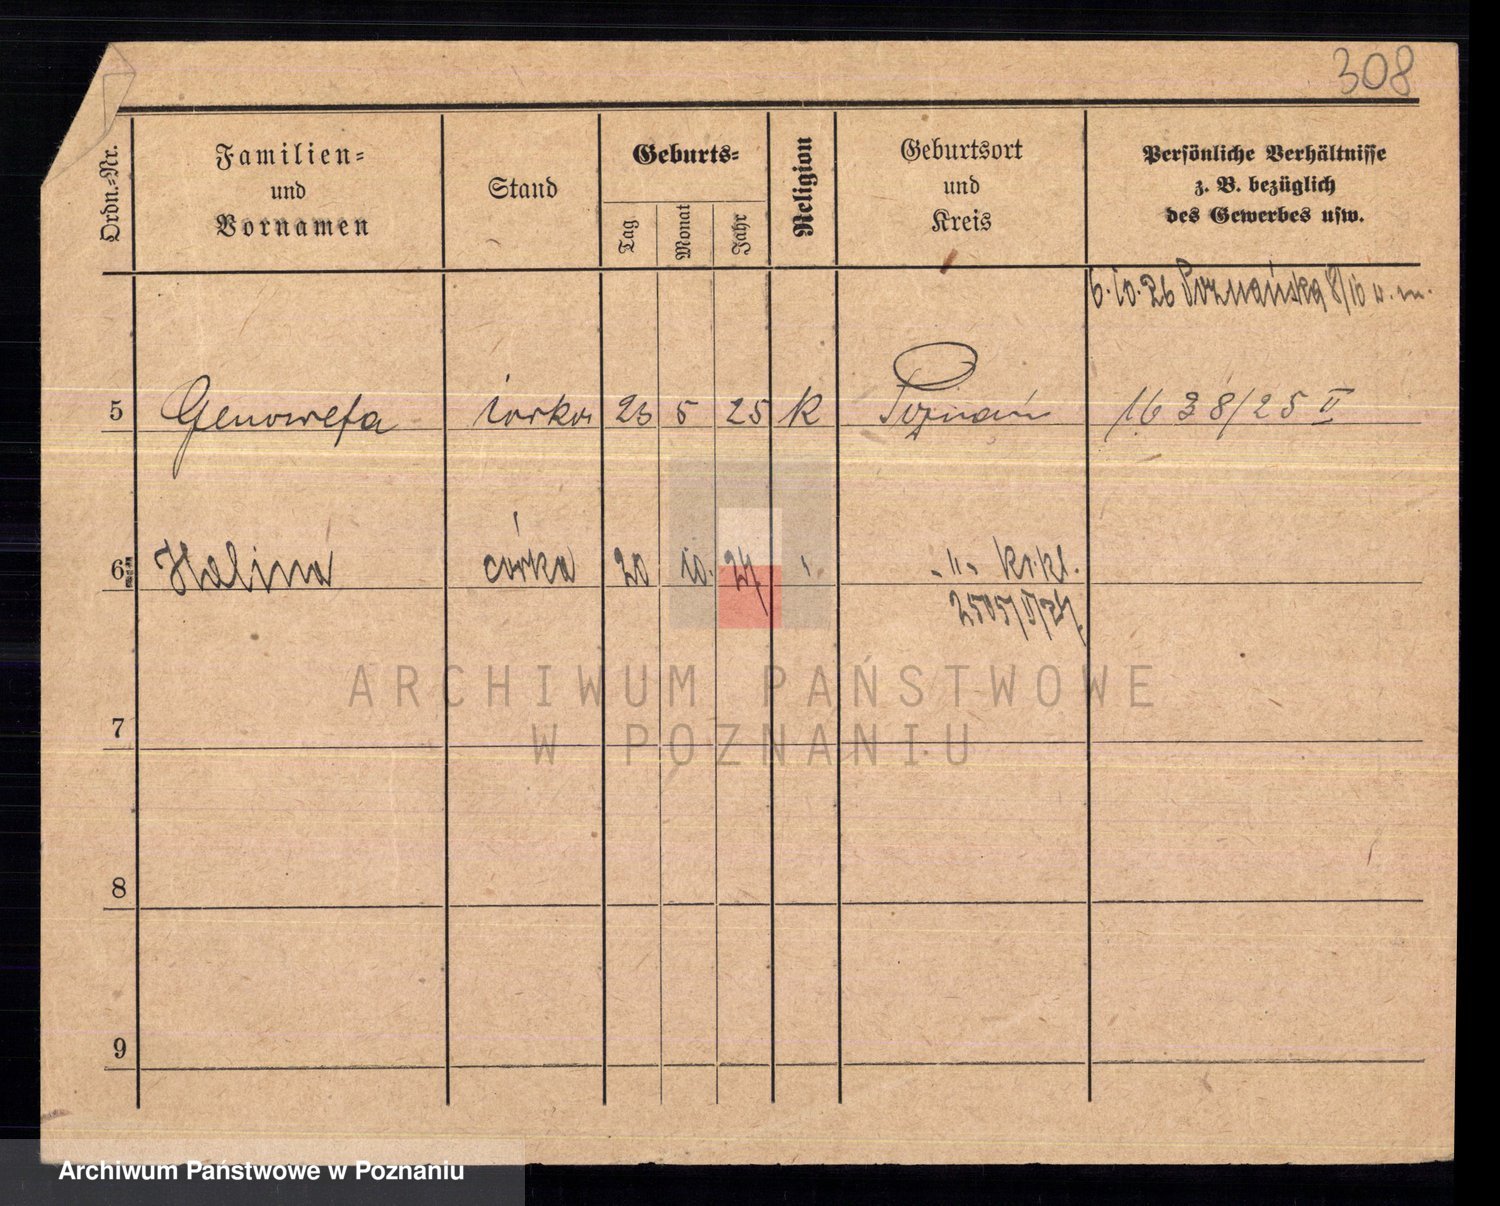 308
Ordn.=Nr.
Familien=
und
Vornamen
Stand
Geburts=
Tag
Monat
Jahr
Religion
Geburtsort
und
Kreis
Persönliche Verhältnisse
z. B. bezüglich
des Gewerbes usw.
6.10.26 Poznańska 8/10 u. m.
5 Genowefa córka 23 5 25 K Poznań 1638/25 II
6. Halina córka 20 10. 27 -"- kr.kl.
2505/II/27
7
ARCHIWUM PAŃSTWOWE
W POZNANIU
8
9
Archiwum Państwowe w Poznaniu